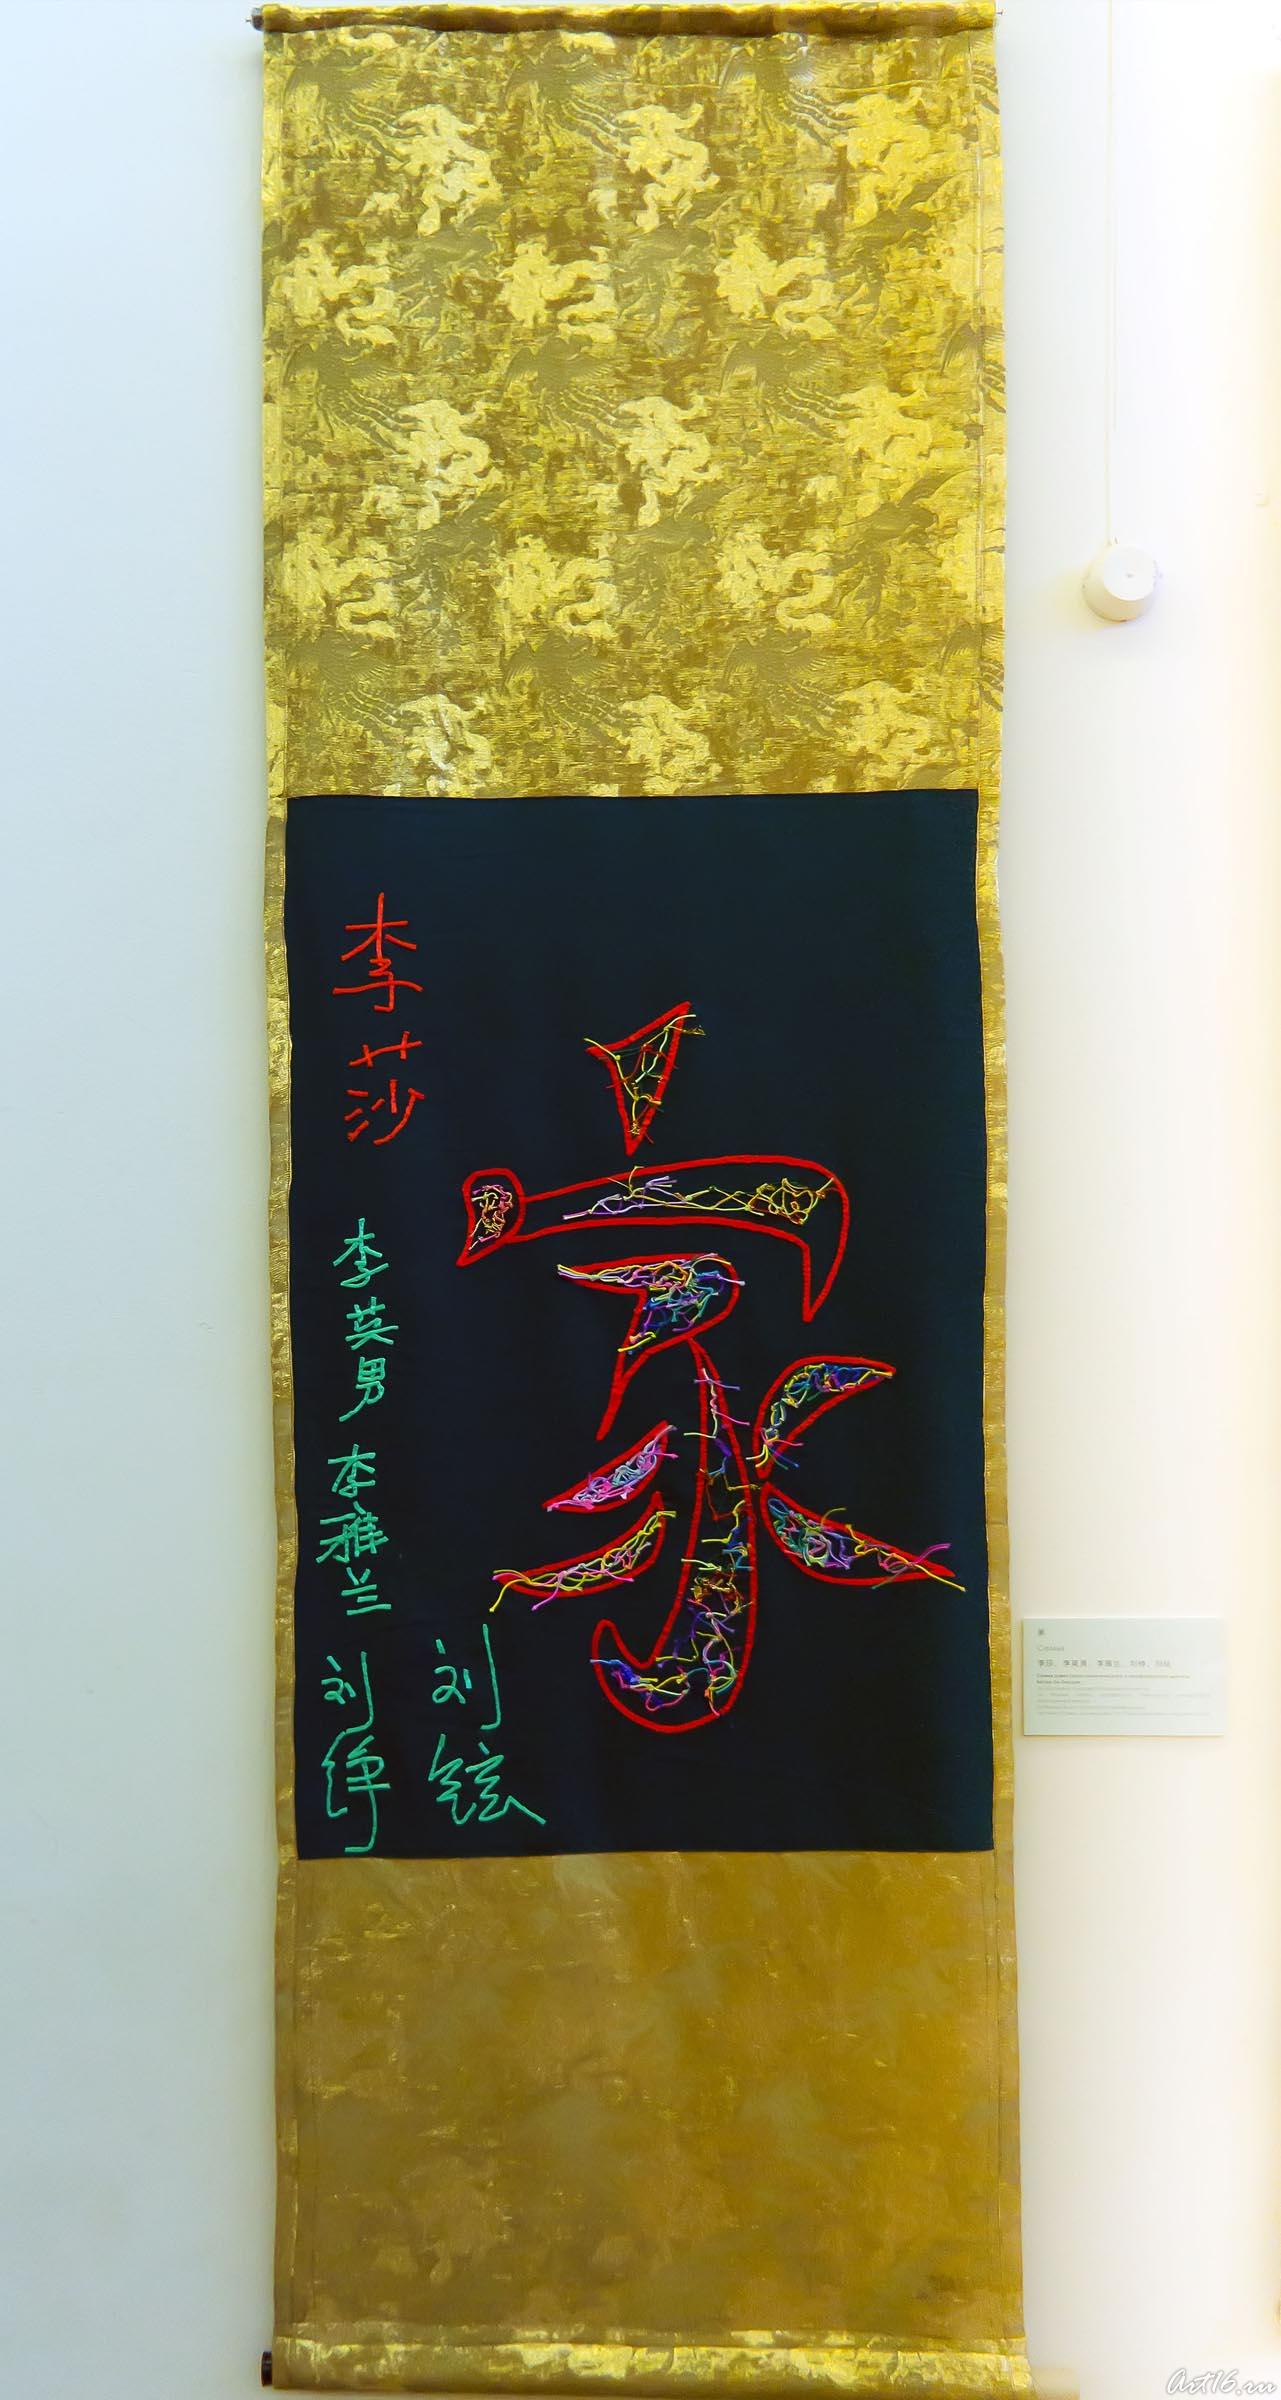 家
李莎
李英男
李雅兰
刘铮
刘铉
家
Семья
李莎、李英男、李雅兰、刘铮、刘铉
Art16.ru